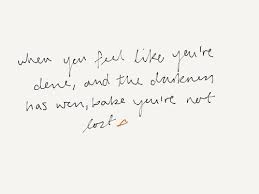 when you feel like you're
done, and the darkness
has won, babe you're not
lost